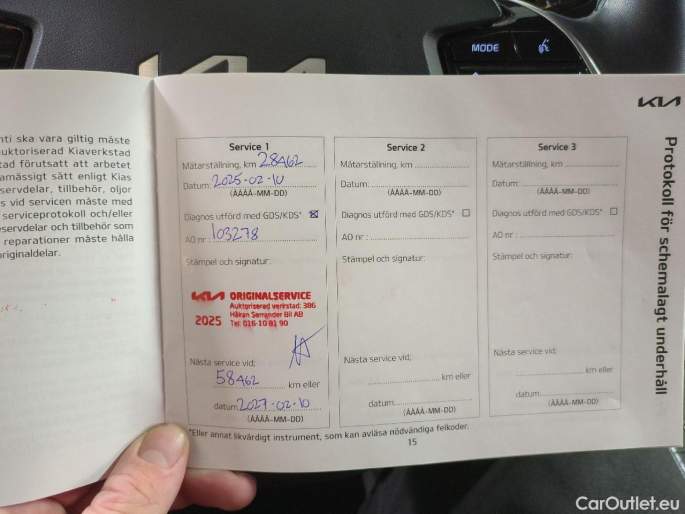 MODE
KIA
nti ska vara giltig måste
uktoriserad Kiaverkstad
tad förutsatt att arbetet
amässigt sätt enligt Kias
servdelar, tillbehör, oljor
s vid servicen måste med
serviceprotokoll och/eller
servdelar och tillbehör som
reparationer måste hålla
riginaldelar.
KIA
Protokoll för schemalagt underhåll
Service 1
Mätarställning, km 28462
Datum: 2025-02-10
(ÅÅÅÅ-MM-DD)
Diagnos utförd med GDS/KDS*
AO nr : 103278
Stämpel och signatur:
KIA ORIGINALSERVICE
Auktoriserad verkstad: 386
Håkan Serrander Bil AB
2025 Tel: 016-10 81 90
Nästa service vid;
58462 km eller
datum: 2027-02-10
(ÅÅÅÅ-MM-DD)
Service 2
Mätarställning, km
Datum:
(ÅÅÅÅ-MM-DD)
Diagnos utförd med GDS/KDS*
AO nr :
Stämpel och signatur:
Nästa service vid;
km eller
datum:
(ÅÅÅÅ-MM-DD)
Service 3
Mätarställning, km
Datum:
(ÅÅÅÅ-MM-DD)
Diagnos utförd med GDS/KDS*
AO nr :
Stämpel och signatur:
Nästa service vid;
km eller
datum:
(ÅÅÅÅ-MM-DD)
*Eller annat likvärdigt instrument, som kan avläsa nödvändiga felkoder.
15
CarOutlet.eu